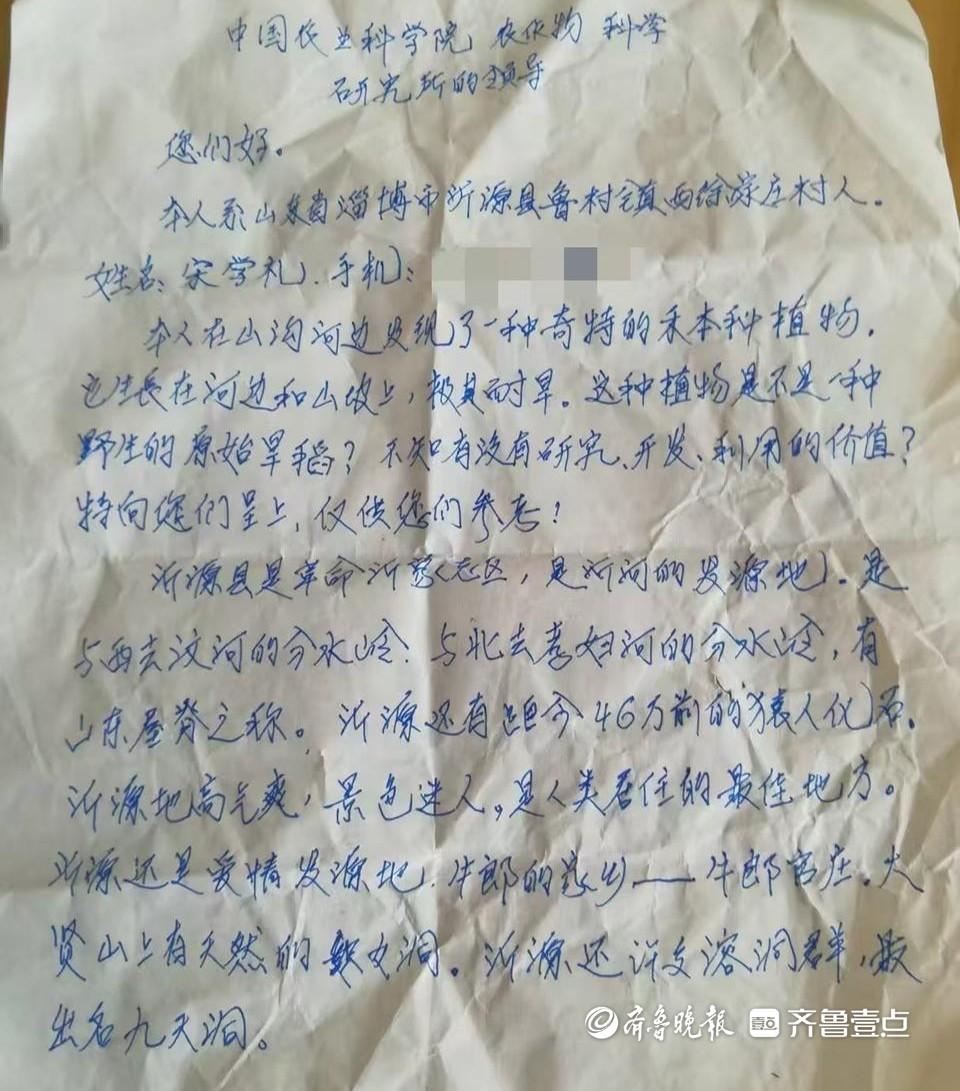 中国农业科学院 农作物 科学
研究所的领导
您们好。
本人系山东省淄博市沂源县鲁村镇西徐家庄村人.
姓名:宋学礼.手机:
本人在山沟河边发现了一种奇特的禾本科植物.
它生长在河边和山坡上,极其耐旱。这种植物是不是一种
野生的原始旱稻?不知有没有研究、开发、利用的价值?
特向您们呈上,仅供您们参考!
沂源县是革命沂蒙老区,是沂河的发源地.是
与西去汶河的分水岭.与北去孝妇河的分水岭,有
山东屋脊之称。沂源还有距今46万前的猿人化石.
沂源地高气爽,景色迷人,是人类居住的最佳地方。
沂源还是爱情发源地.牛郎的家乡——牛郎官庄.大
贤山上有天然的织女洞。沂源还许多溶洞群,最
出名九天洞。
齐鲁晚报 齐鲁壹点